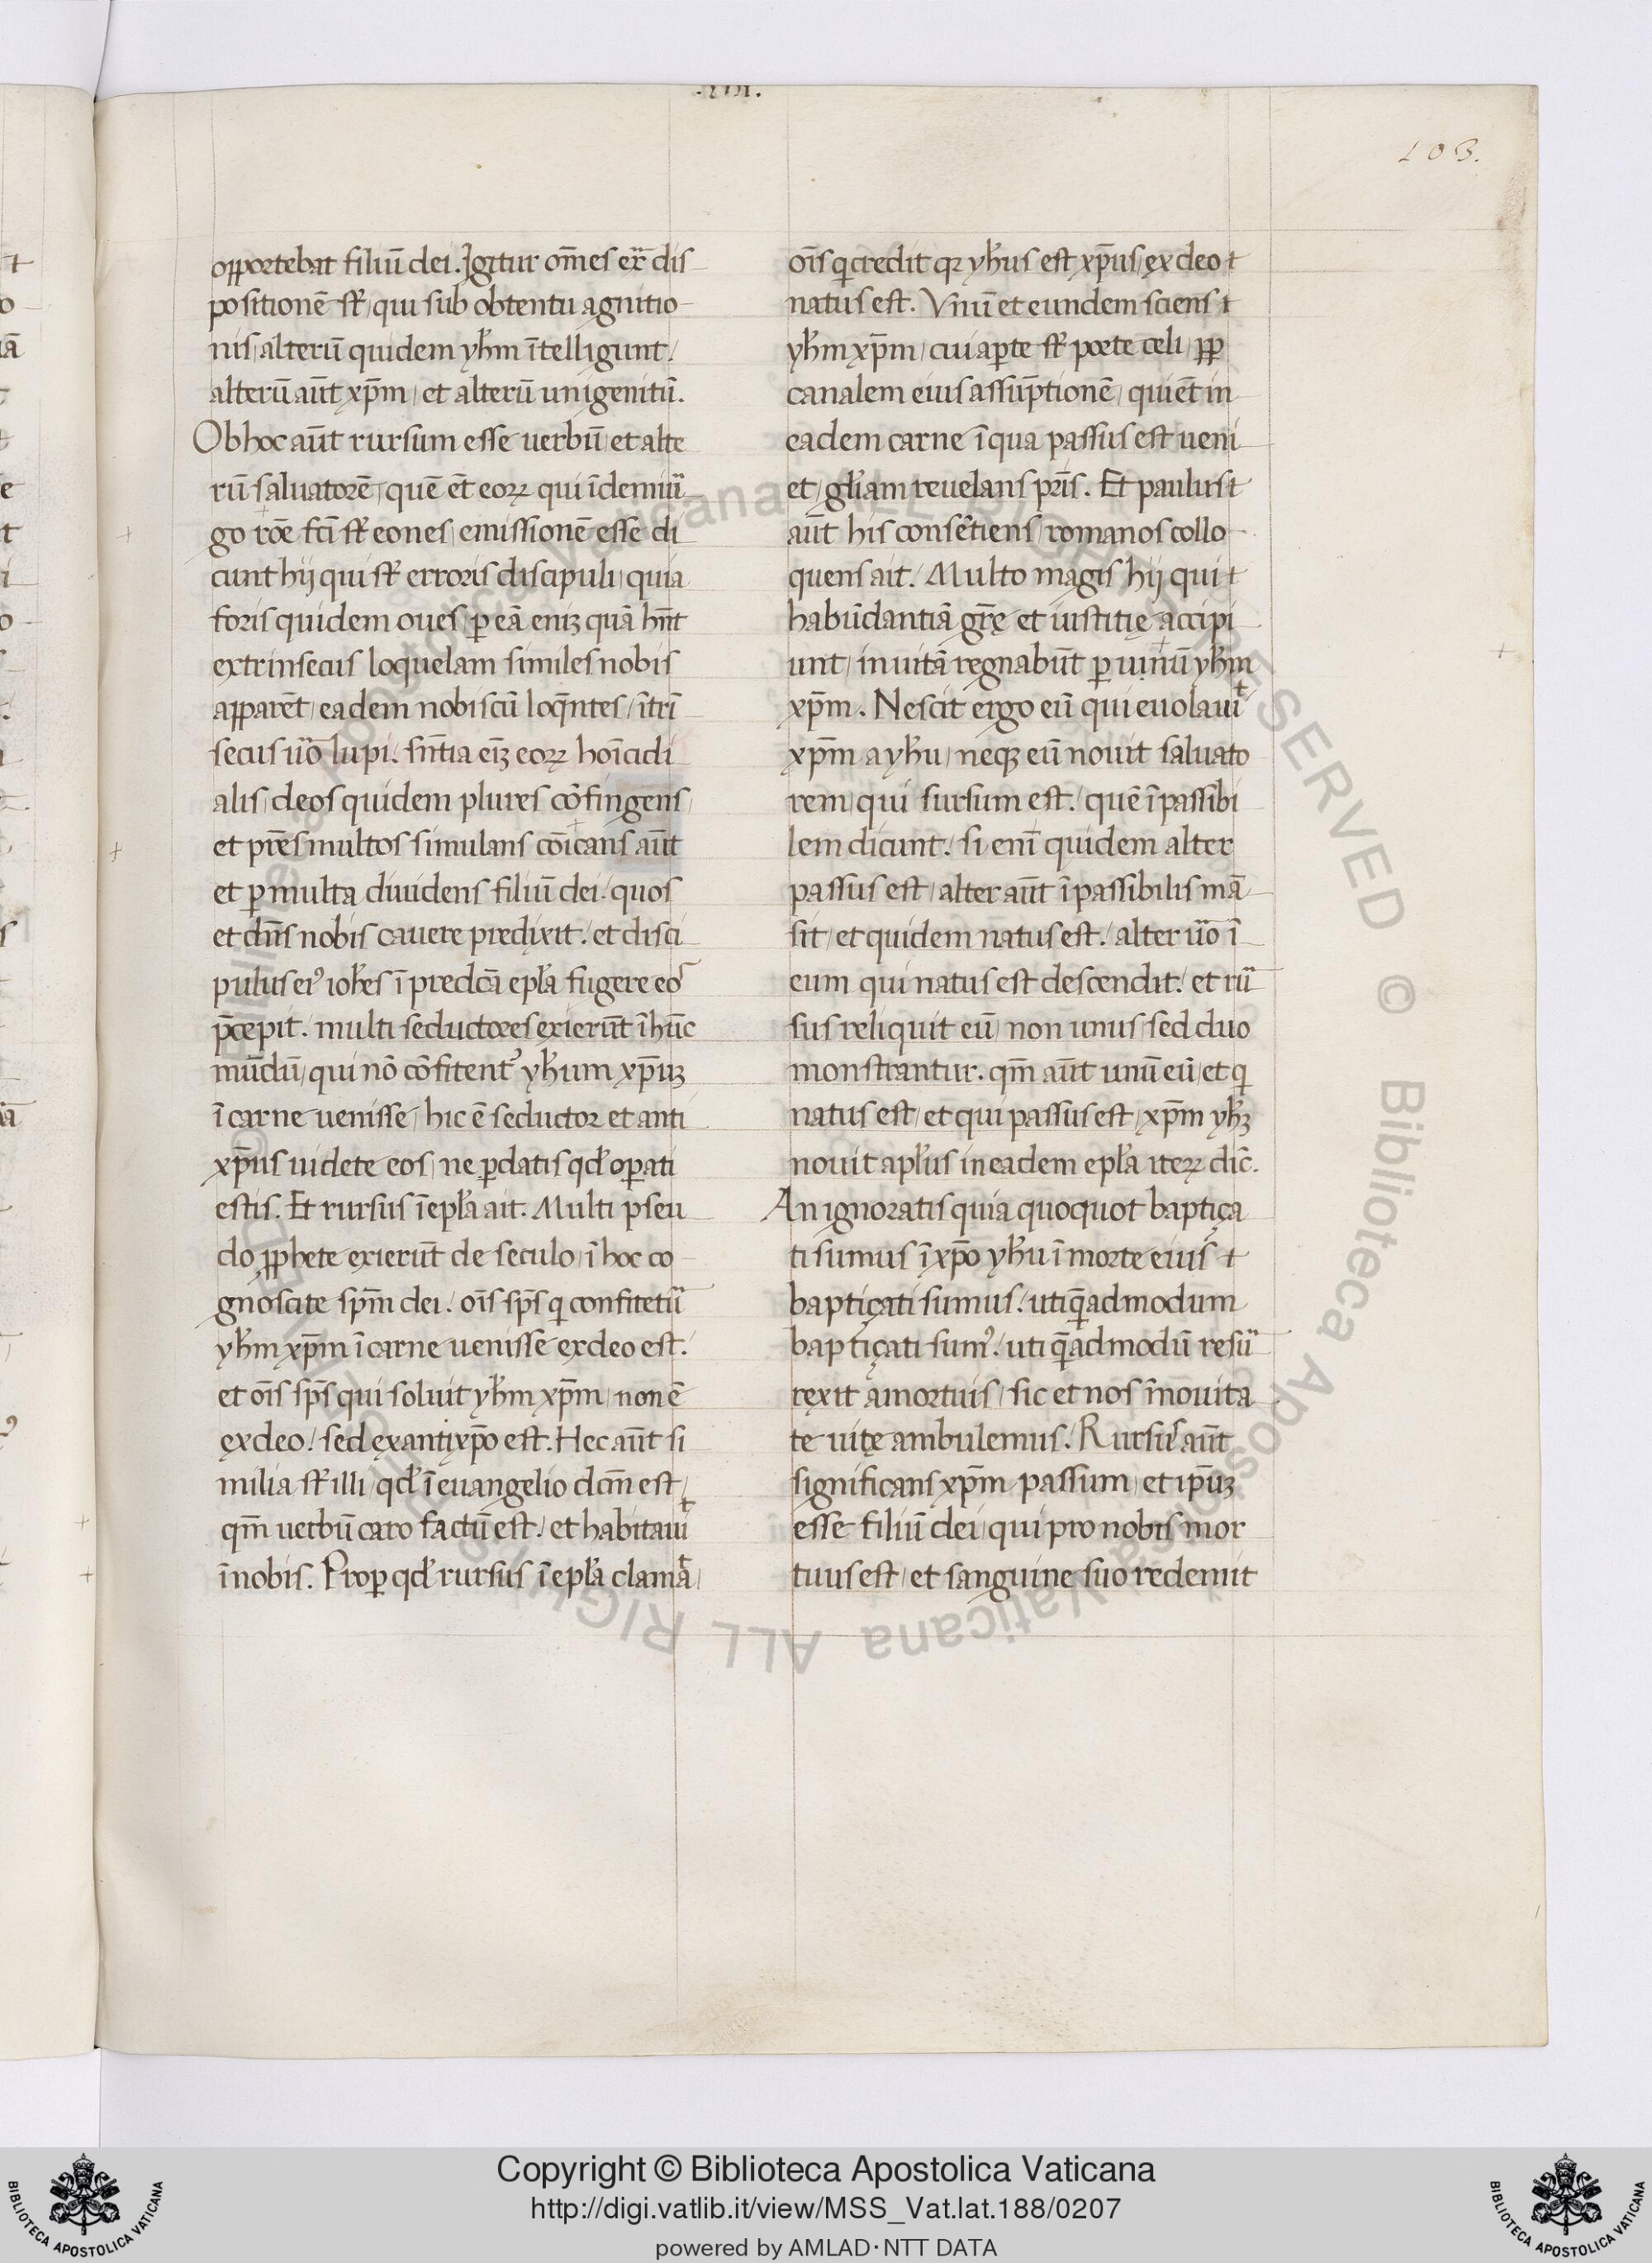 .IIII.
103.
opportebat filiū dei. Igitur om̄es ex̄ dis
positionē st̄ qui sub obtentu agnitio
nis alterū quidem yh̄m ītelligunt/
alterū aūt xp̄m, et alterū unigenitū.
Ob hoc aūt rursum esse uerbū, et alte
rū saluatorē, quē ēt eoꝝ qui ī demiū
go rōe fc̄i st̄ eones, emissionē esse di
cunt hij qui st̄ erroris discipuli, quia
foris quidem oues, ꝑ eā eniȝ quā hn̄t
extrinsecus loquelam similes nobis
apparēt, eadem nobiscū loq̄ntes, ītrī
secus ūo lupi. sn̄tia eīȝ eoꝝ hoīcidi
alis, deos quidem plures cōfingens,
et pr̄es multos simulans cōicans aūt
et ꝑ multa diuidens filiū dei. quos
et dn̄s nobis cauere predixit. et disci
pulus eiꝰ ioh̄es ī predc̄a epl̄a fugere eos
p̄cepit. multi seductores exierūt ī hūc
mūdū, qui nō cōfitentꝰ yh̄um xp̄uȝ
ī carne uenisse, hic ē seductor et anti
xp̄us uidete eos, ne ꝑdatis qd̄ oꝑati
estis. Et rursus ī epl̄a ait. Multi pseu
do ꝓphete exierūt de seculo, ī hoc co
gnoscite sp̄m dei. oīs sp̄s qi confitetū
yh̄m xp̄m ī carne uenisse ex deo est.
et oīs sp̄s qui soluit yh̄m xp̄m, non ē
ex deo. sed ex antixp̄o est. Hec aūt si
milia st̄ illi qd̄ ī euangelio dcm̄ est,
qm̄ uerbū caro factū est. et habitauit
ī nobis. Proꝑ qd̄ rursus ī epl̄a clamāt,
oīs qi credit qꝛ yh̄us est xp̄us, ex deo
natus est. Vnū et eundem sciens
yh̄m xp̄m, cui aꝑte st̄ porte celi, ꝓꝑ
canalem eius assūptionē, qui ēt in
eadem carne ī qua passus est ueni
et, gl̄iam reuelans pr̄is. Et paulus
aūt his consētiens, romanos collo
quens ait. Multo magis hij qui
habūdantiā gr̄ę et iustitię accipi
unt, in uitā regnabūt ꝑ uinū yh̄m
xp̄m. Nescit ergo eū qui euolauit
xp̄m a yh̄u, neqȝ eū nouit saluato
rem, qui sursum est. quē īpassibi
lem dicunt. si enī quidem alter
passus est, alter aūt īpassibilis mā
sit, et quidem natus est. alter ūo ī
eum qui natus est descendit. et rū
sus reliquit eū, non unus, sed duo
monstrantur. qm̄ aūt unū eū, et qi
natus est, et qui passus est, xp̄m yh̄ȝ
nouit apl̄us in eadem epl̄a iteꝝ dic̄.
An ignoratis quia quoquot baptiça
ti sumus ī xp̄o yh̄u ī morte eius
baptiçati sumus. uti q̄admodum
baptiçati sumꝰ. uti q̄admodū resū
rexit a mortuis, sic et nos ī nouita
te uitę ambulemus. Rursus aūt
significans xp̄m passum, et ip̄uȝ
esse filiū dei, qui pro nobis mor
tuus est, et sanguine suo redemit
Copyright © Biblioteca Apostolica Vaticana
http://digi.vatlib.it/view/MSS_Vat.lat.188/0207
powered by AMLAD·NTT DATA